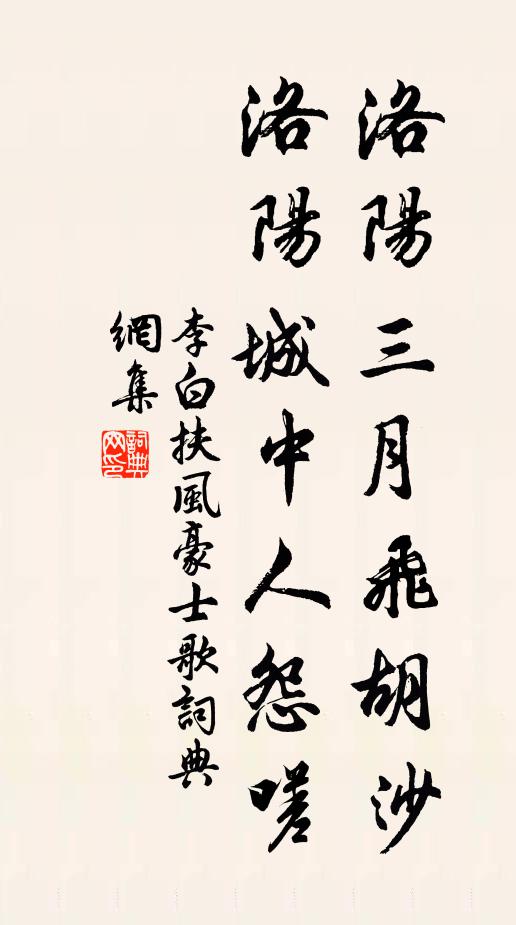 洛陽三月飛胡沙
洛陽城中人怨嗟
李白扶風豪士歌詞典
網集
詞典
网印